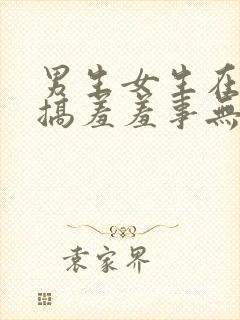 男生女生在
搞羞羞事無
袁家界